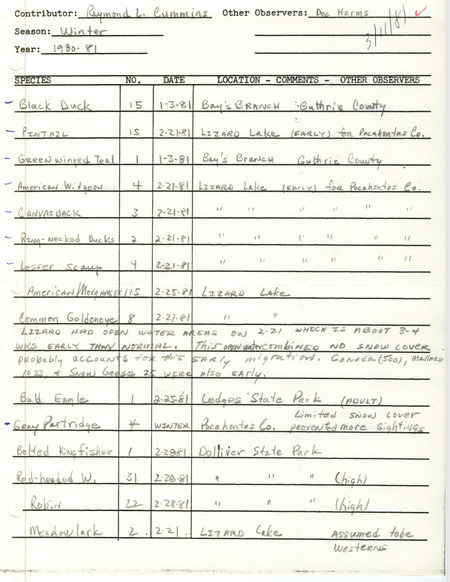 Contributor: Raymond L. Cummins Other Observers: Doc Harms
Season: Winter
3/11/81
Year: 1980-81
SPECIES NO. DATE LOCATION - COMMENTS - OTHER OBSERVERS
Black Duck 15 1-3-81 Bay's BRANCH Guthrie County
PINTAIL 15 2-21-81 LIZARD Lake (EARLY) for Pocahontas Co.
Green winged Teal 1 1-3-81 Bay's Branch Guthrie County
American Widgeon 4 2-21-81 LIZARD Lake (EARLY) for Pocahontas Co.
CANVASBACK 3 2-21-81 " " " " "
Ring-necked Ducks 2 2-21-81 " " " " "
Lesser Scaup 4 2-21-81 " " " " "
American Merganser 115 2-25-81 LIZARD Lake
Common Goldeneye 8 2-21-81 " "
LIZARD HAD OPEN WATER AREAS ON 2-21 WHICH IS ABOUT 3-4
WKS EARLY THAN NORMAL. This open water combined NO SNOW COVER
probably accounts for this EARLY migration. Canada (500), Mallard
1033, + Snow Geese 25 were also early.
Bald Eagle 1 2-25-81 Ledges State Park (ADULT)
Gray Partridge 4 WINTER Pocahontas Co. Limited snow cover
prevented more sightings
Belted Kingfisher 1 2-28-81 Dolliver State Park
Red-headed W. 31 2-28-81 " " " (high)
Robin 22 2-28-81 " " " (high)
Meadowlark 2 2-21 LIZARD Lake Assumed to be
Westerns